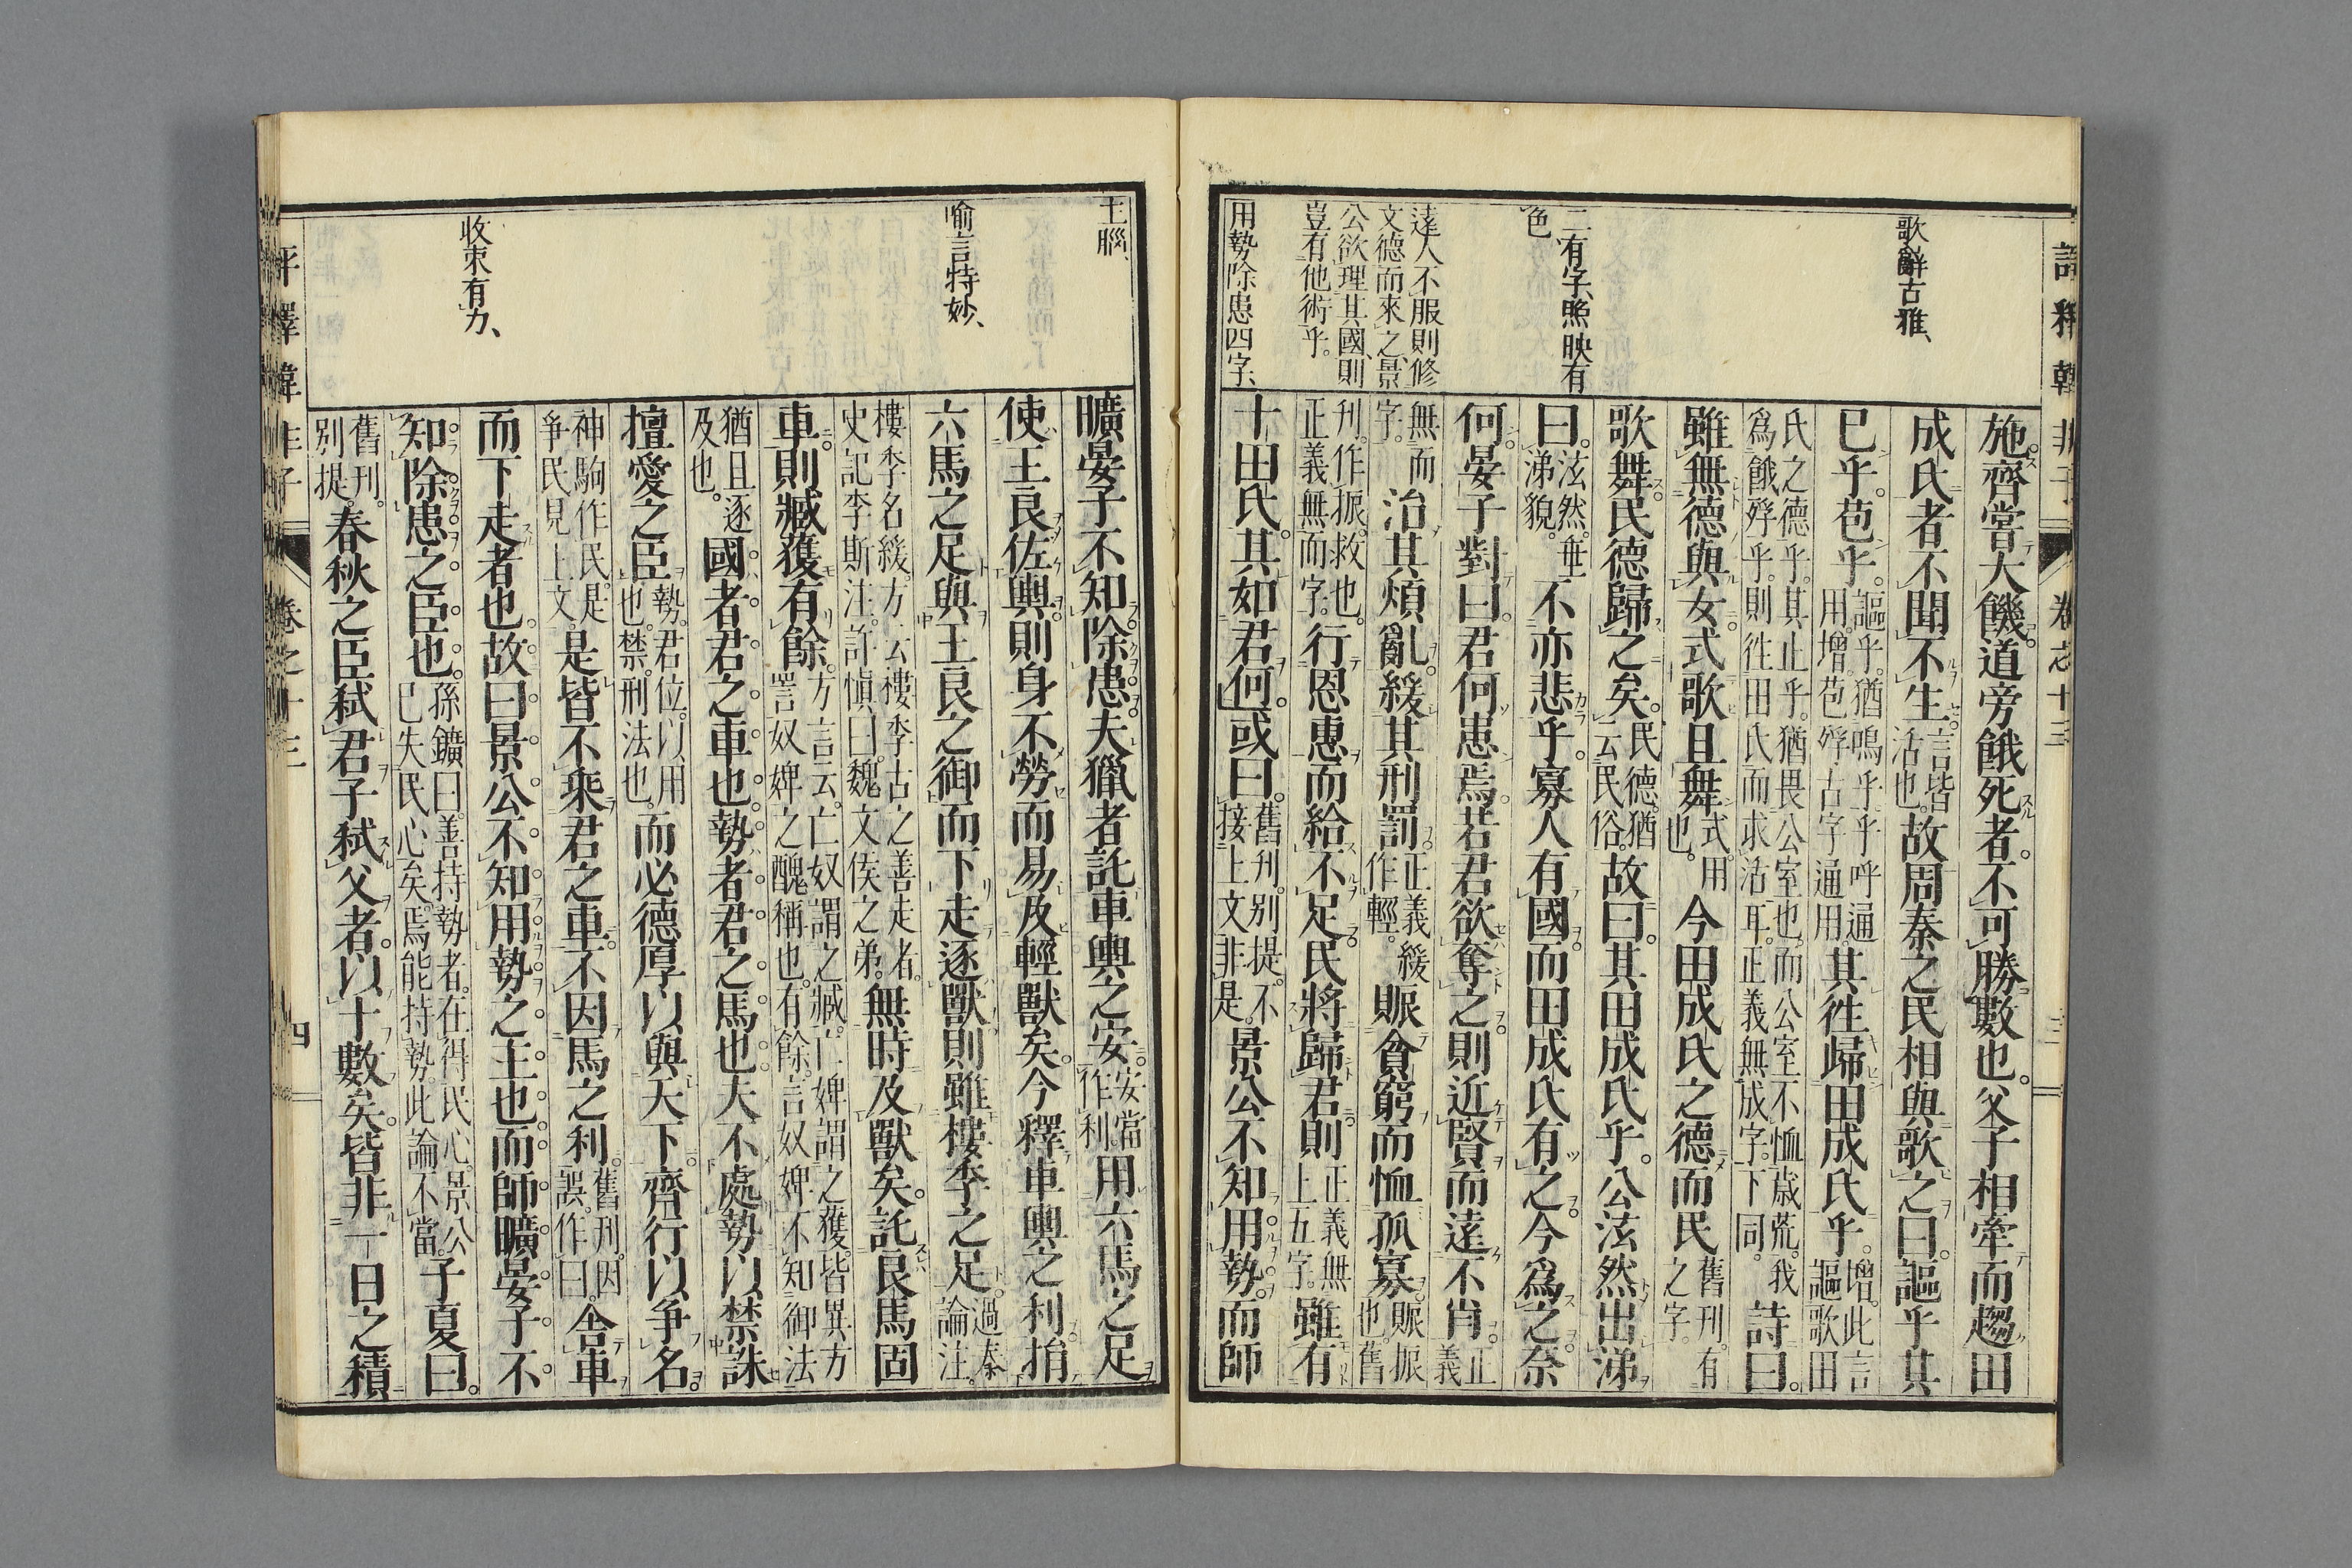 歌辭古雅、
二有字、照映有
色
遠人不服則修
文德而來之、景
公欲理其國、則
豈有他術乎。
用勢除患四字、
施。齊嘗大饑。道旁餓死者。不可勝數也。父子相牽而趨田
成氏者不聞不生。言皆活也。故周秦之民相與歌之曰。謳乎其
巳乎。苞乎。謳乎。猶嗚乎。乎呼通用。增。苞殍古字通用。其徃歸田成氏乎。增。此言謳歌田
氏之德乎。其止乎。猶畏公室也。而公室不恤歲荒。我爲餓殍乎。則徃田氏而求活耳。正義無成字。下同。詩曰。
雖無德與女。式歌且舞。式。用也。今田成氏之德而民舊刊。有之字。
歌舞。民德歸之矣。民德。猶云民俗。故曰。其田成氏乎。公泫然出涕
曰。泫然。垂涕貌。不亦悲乎。寡人有國。而田成氏有之。今爲之奈
何。晏子對曰。君何患焉。若君欲奪之。則近賢而遠不肖。正義
無而字。治其煩亂。緩其刑罰。正義緩作輕。賑貧窮而恤孤寡。賑振也。舊
刊。作振。救也。正義無而字。行恩惠而給不足。民將歸君。則正義無上五字。雖有
十田氏。其如君何。或曰。舊刊。別提。不接上文。非是。景公不知用勢。而師
評釋韓非子 卷之十三 三
主腦、
喻言特妙、
收束有力、
曠晏子不知除患。夫獵者託車輿之安。安當作利。用六馬之足。
使王良佐輿。則身不勞而易及輕獸矣。今釋車輿之利。捐
六馬之足與王良之御。而下走逐獸。則雖樓季之足。過秦論注。
樓季名緩。方云樓季古之善走者。史記李斯注。許愼曰。魏文侯之弟。無時及獸矣。託良馬固
車。則臧獲有餘。方言云。亡奴謂之臧。亡婢謂之獲。皆異方罵奴婢之醜稱也。有餘。言奴婢不知御法
猶且逐及也。國者。君之車也。勢者。君之馬也。夫不處勢以禁誅
擅愛之臣。勢。君位。以用也。禁。刑法也。而必德厚以與天下齊行以爭名。
神駒作民。是爭民見上文。是皆不乘君之車。不因馬之利。舊刊。因誤作曰。舍車
而下走者也。故曰。景公。不知用勢之主也。而師曠晏子。不
知除患之臣也。孫鑛曰。善持勢者。在得民心。景公已失民心矣。焉能持勢。此論不當。子夏曰。
舊刊。別提。春秋之臣弒君。子弒父者。以十數矣。皆非一日之積
評釋韓非子 卷之十三 四